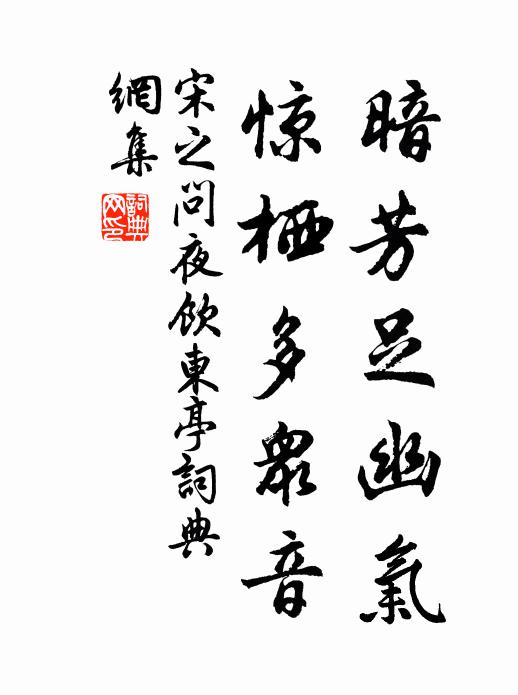 暗芳足幽氣
惊栖多衆音
宋之问夜飲東亭詞典
網集
詞典
网印